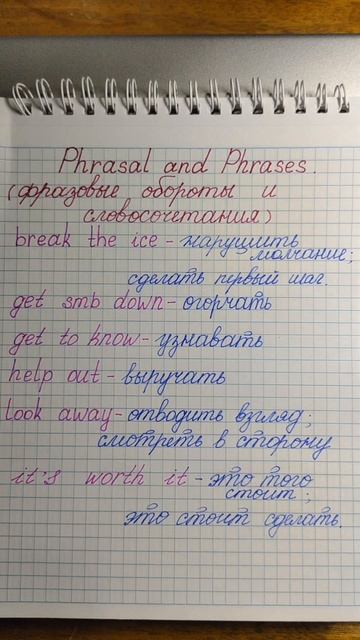 Phrasal and Phrases.
(фразовые обороты и
словосочетания)
break the ice - нарушить
молчание;
сделать первый шаг.
get smb down - огорчать
get to know - узнавать
help out - выручать
look away - отводить взгляд;
смотреть в сторону
it's worth it - это того
стоит;
это стоит сделать.